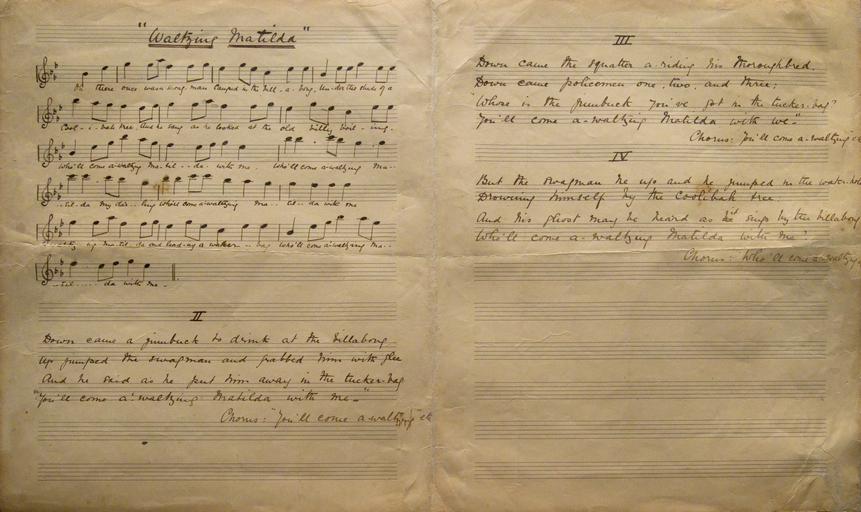 "Waltzing Matilda"
Oh there once was a swag-man camped in the Bill-a-bong, Un-der the shade of a
Cool-i-bah tree, And he sang as he looked at the old billy boil-ing,
Who'll come a-waltzing Ma-til-da with me. Who'll come a-waltzing Ma-
til-da my dar-ling Who'll come a-waltzing Ma-til-da with me
ing Ma-til-da and lead-ing a water-bag Who'll come a-waltzing Ma-
til-da with me-
II
Down came a jumbuck to drink at the billabong
Up jumped the swagman and grabbed him with glee
And he said as he put him away in the tucker-bag
"You'll come a-waltzing Matilda with me"
Chorus: "You'll come a-waltzing" etc
III
Down came the squatter a-riding his thoroughbred.
Down came policemen one, two, and three;
"Whose is the jumbuck you've got in the tucker-bag?
You'll come a-waltzing Matilda with we."
Chorus: You'll come a-waltzing
IV
But the swagman he up and he jumped in the water-hole
Drowning himself by the Coolibah tree
And his ghost may be heard as it sings by the billabong
Who'll come a-waltzing Matilda with me?
Chorus: Who'll come a-waltzing